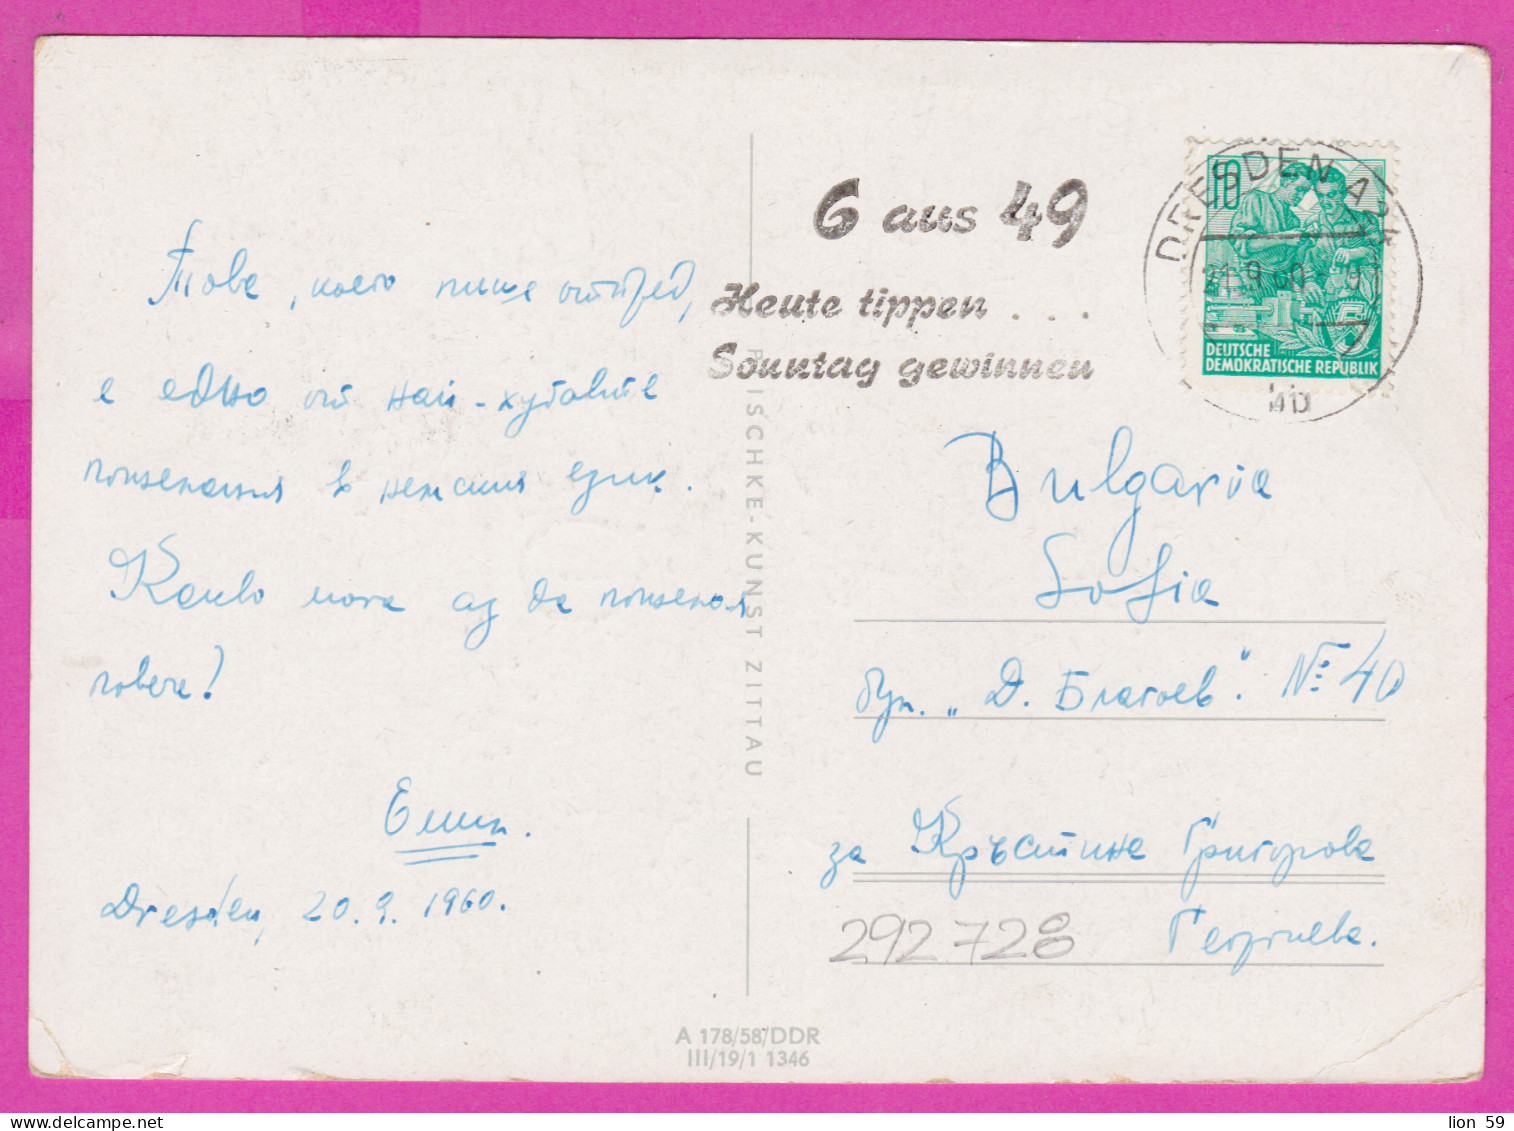 Това, което пише отпред,
е едно от най-хубавите
пожелания в немския език.
Какво мога аз да пожелая
повече!
Емил.
Dresden, 20.9.1960.
6 aus 49
Heute tippen . . .
Sonntag gewinnen
DRESDEN A
21.9.60
10
DEUTSCHE
DEMOKRATISCHE REPUBLIK
ISCHKE-KUNST ZITTAU
Bulgaria
Sofia
бул. „Д. Благоев". № 40
за Кръстина Григорова
Георгиева.
292728
A 178/58/DDR
III/19/1 1346
lion 59